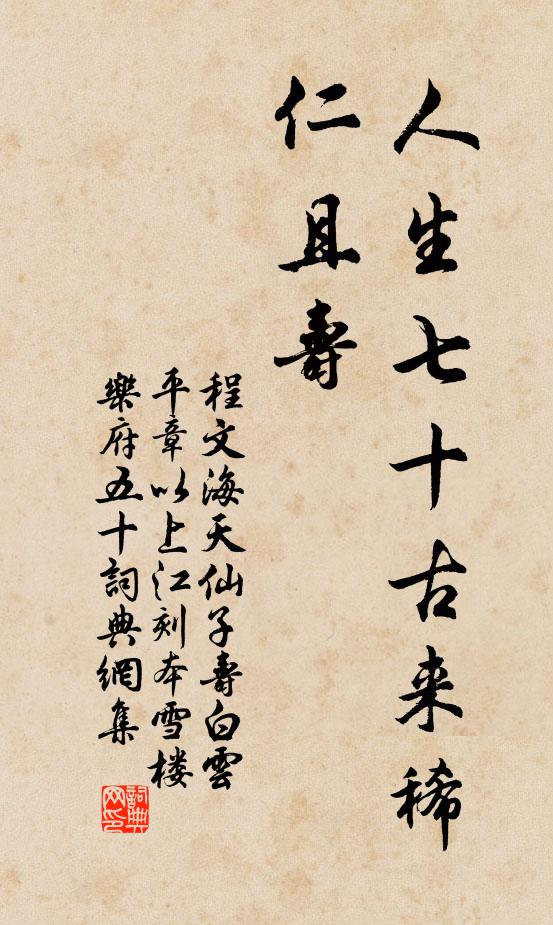 人生七十古来稀
仁且壽
程文海天仙子壽白雲
平章以上江刻本雪楼
樂府五十詞典網集
詞典
网印